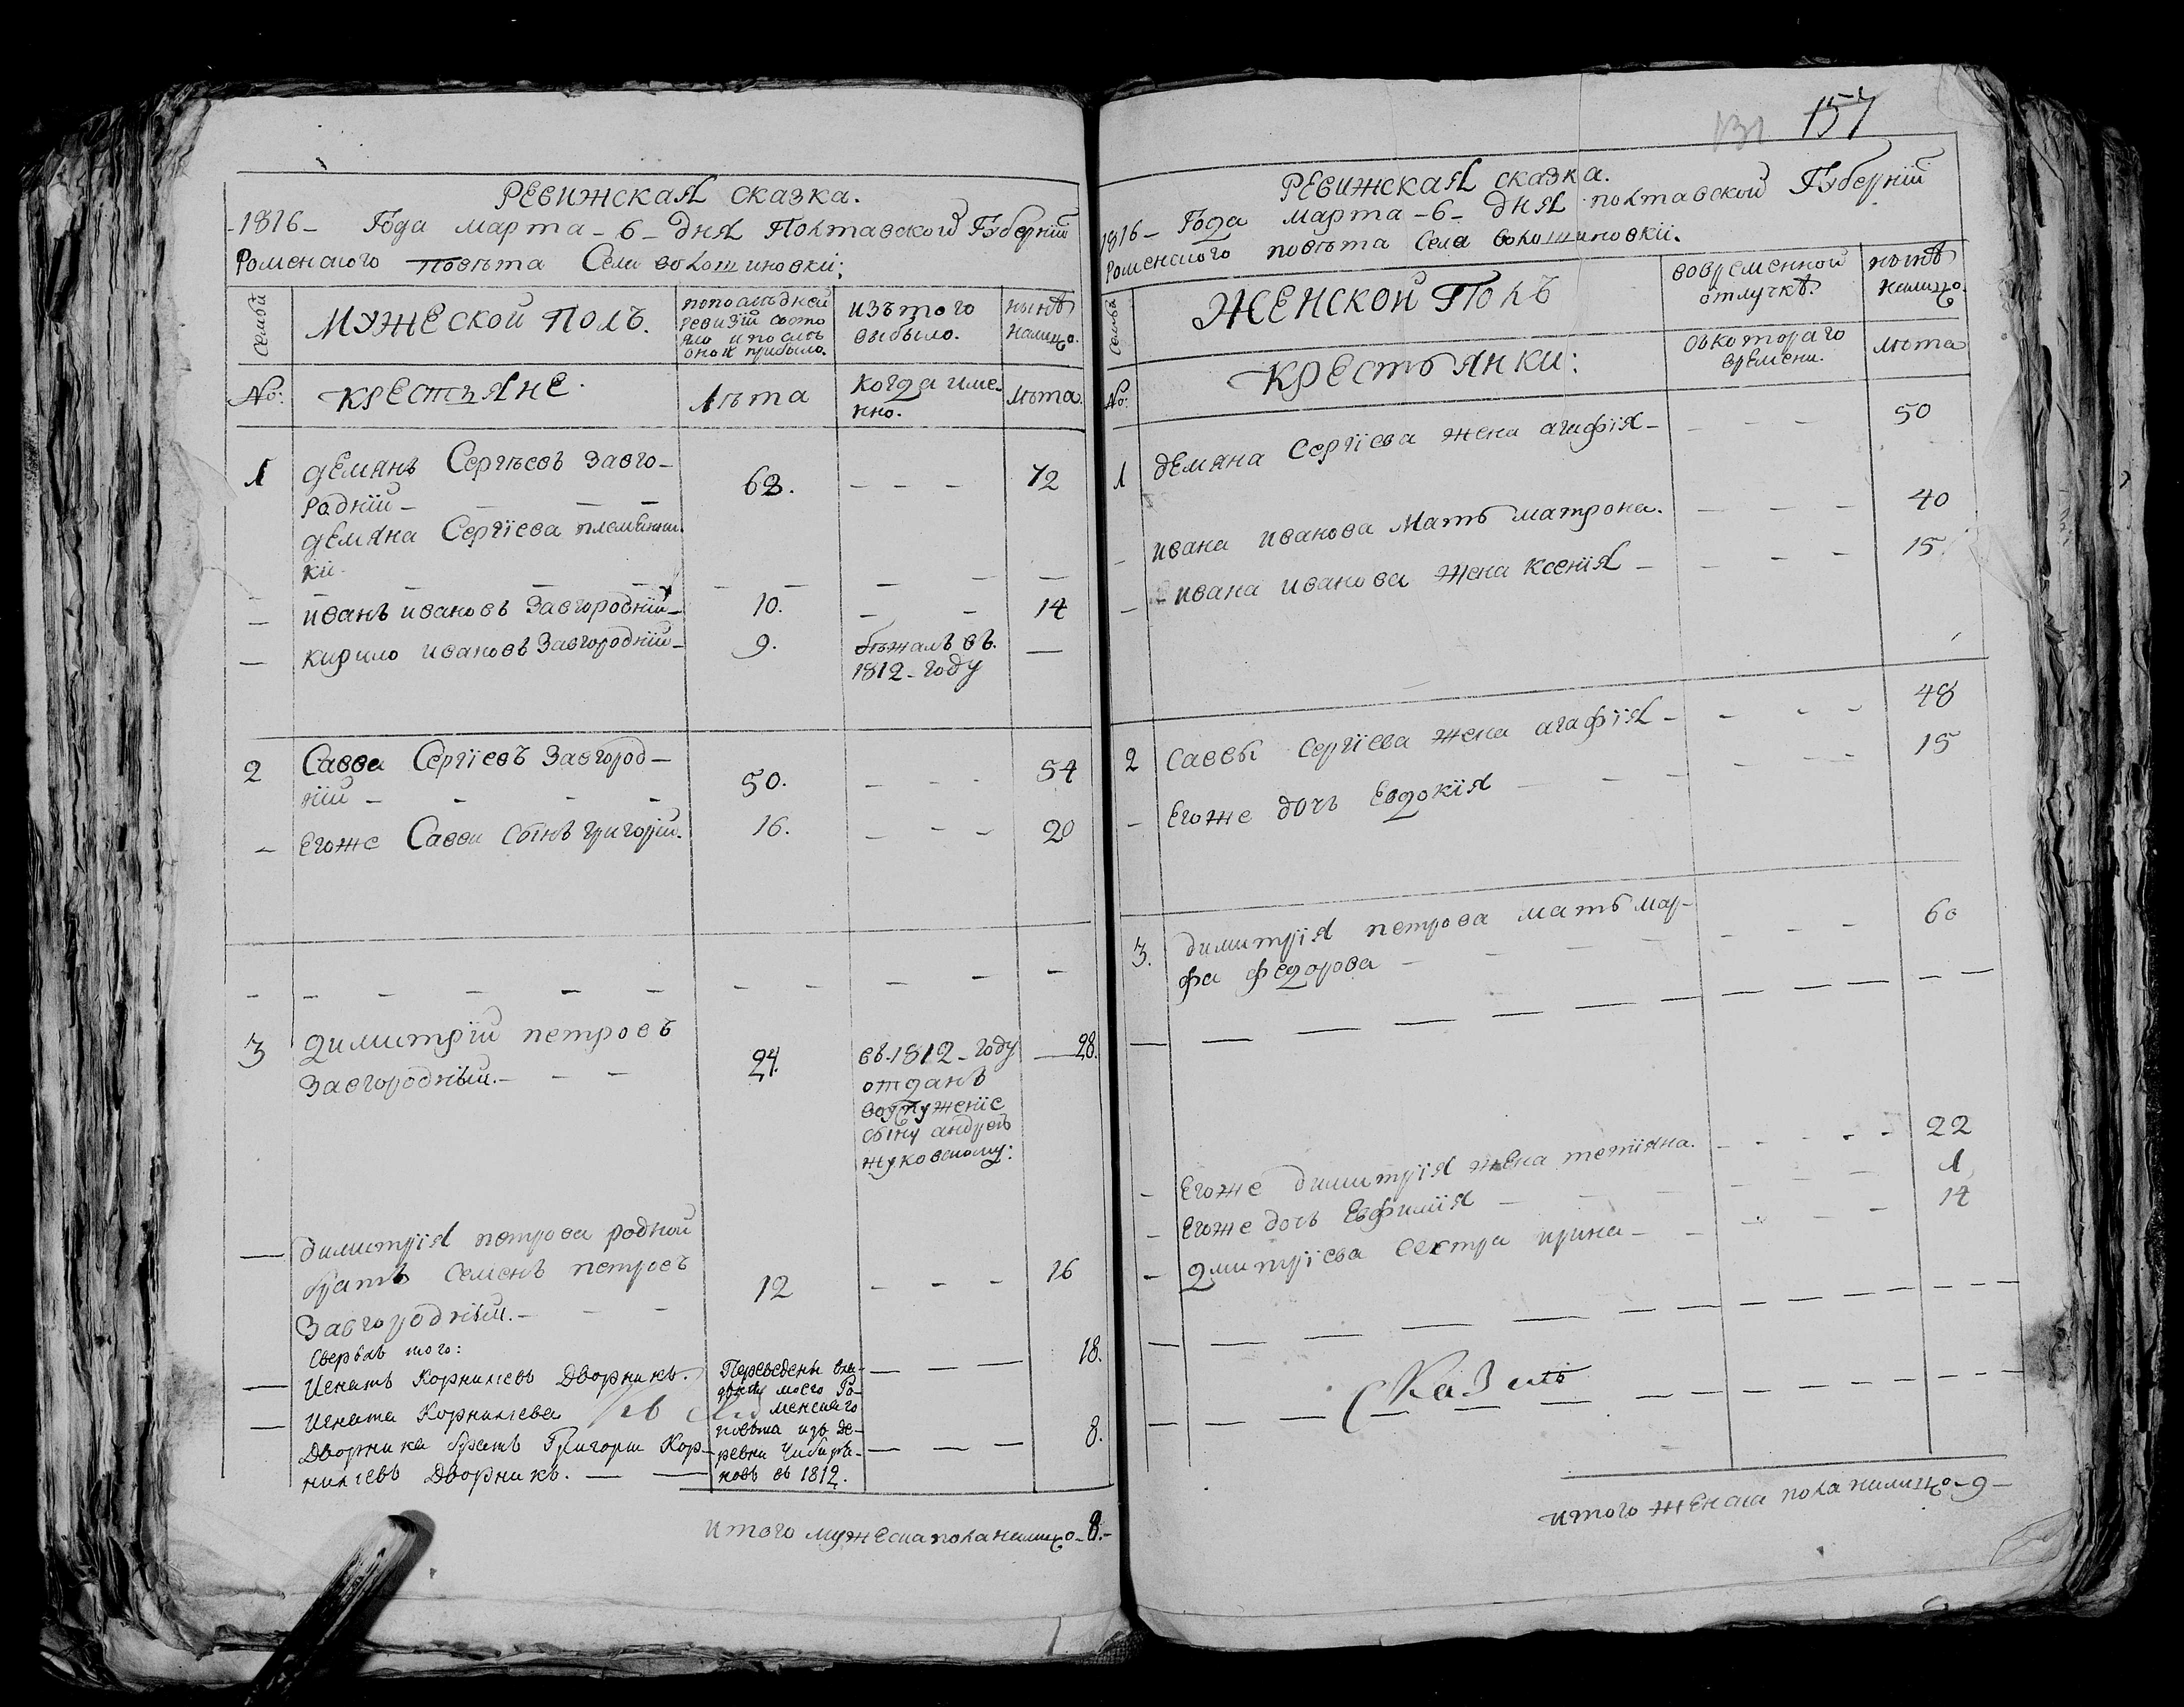 РЕВИЖСКАЯ СКАЗКА.
-1816- Года марта -6- дня Полтавской Губернїи
Роменского повѣта Села волошиновкїи;
Семьи
МУЖЕСКОЙ ПОЛЪ.
попослѣдней
ревизїи состо
яло и послѣ
оной прибыло.
изътого
выбыло.
нынѣ
налицо.
№:
КРЕСТЬЯНЕ
Лѣта
когда име-
нно.
лѣта
1 демянъ Сергѣевъ Завго-
родній 63. 72
демяна Сергїева племянни
ки
иванъ ивановъ Завгородній 10. 14
кирило ивановъ Завгородній 9. бѣжалъ въ.
1812-году
2 Савва Сергїевъ Завгород-
нїй 50. 54
Егоже Савви сынъ григорїй. 16. 20
3 димитрїй петровъ
Завгородный. 24. въ-1812-году 28.
отданъ
сыну андрею
жуковскому:
димитрїя петрова родной
братъ Семенъ петровъ
Завгородный. 12 16
Сверхъ того:
Игнатъ Корнилїевъ Дворникъ. 18.
Игната Корнилїева
Дворника братъ Григорїи Кор- 8.
нилїевъ Дворникъ.
Переведены
моего Ро-
менскаго
повѣта изъ де-
ревни
въ 1812.
итого мужеска пола налицо-8.-
131 157
РЕВИЖСКАЯ СКАЗКА.
1816- Года марта -6- дня полтавской Губернїй
Роменского повѣта Села волошиновкїи.
Семьи
ЖЕНСКОЙ ПОЛЪ
вовременной
отлучкѣ.
нынѣ
налицо.
№:
КРЕСТЬЯНКИ:
съкотораго
времени.
лѣта
1 демяна Сергїева жена агафїя 50
ивана иванова мать матрона. 40
ивана иванова жена ксенїя 15
2 Саввы Сергїева жена агафїя 48
Егоже дочь Евдокїя 15
3. димитрїя петрова мать мар-
фа федорова 60
Егоже димитрїя жена тетіяна. 22
Егоже дочь Евфимїя 1
дмитрїева сестра ирина 14
итого женска пола налицо-9-